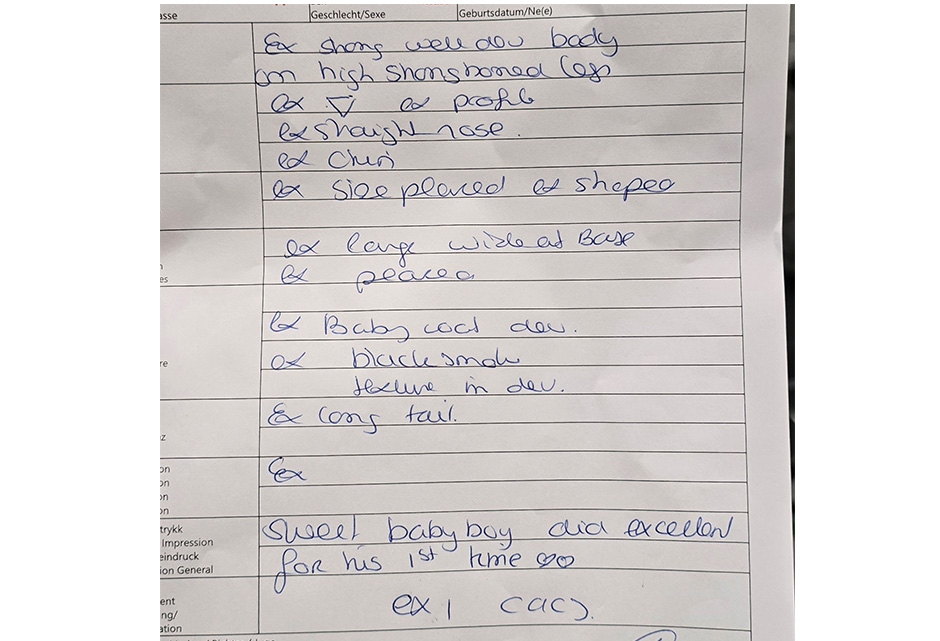 asse Geschlecht/Sexe Geburtsdatum/Ne(e)
Ex strong well dev body
on high strong boned legs
ex ▽ ex profile
ex straight nose.
ex chin
ex size placed ex shaped
ex large wide at Base
es ex placed
ex Baby coat dev.
re ex black smoke
texture in dev.
Ex long tail.
z
on Ex
on
on
on
trykk sweet baby boy did excellent
Impression
eindruck for his 1st time ♡♡
ion General
ent ex 1 CACJ.
ng/
ation